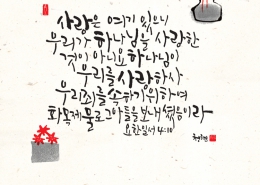 사랑은 여기 있으니
우리가 하나님을 사랑한
것이 아니요 하나님이
우리를 사랑하사
우리 죄를 속하기 위하여
화목제물로 그 아들을 보내셨음이라
요한일서 4:10